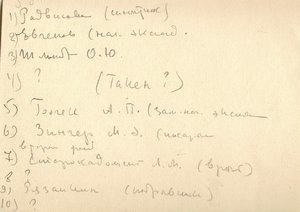 1) Радвиллович (синоптик)
2) Евгенов (нач. экспед.
3) Шмидт О.Ю.
4) ? (Такен?)
5) Гоген А. П. (зам. нач. экспед
6) Зингер М. Э. (писатель
7) Старокадомский Л. М. (врач)
8 ?
9) Рязанкин
10) ?